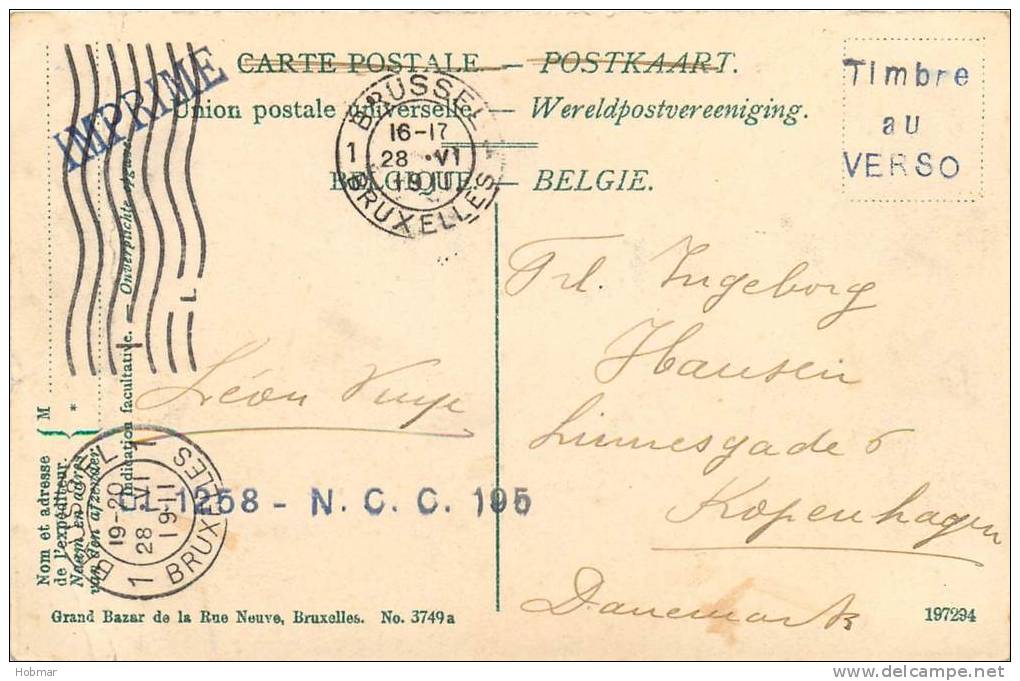 CARTE POSTALE. — POSTKAART.
Union postale universelle. — Wereldpostvereeniging.
BELGIQUE. — BELGIE.
IMPRIME
Timbre
au
VERSO
BRUSSEL
16-17
1 28 VI
1911
BRUXELLES
Frl. Ingeborg
Hansen
Linnesgade 6
Kopenhagen
Danemark
Léon
CL 1258 - N. C. C. 195
BRUSSEL
19-20
1 28 VI
1911
BRUXELLES
M
*
Nom et adresse
de l'expéditeur.
Naam en adres
van den afzender.
Indication facultative. — Onverplichte opgave.
Grand Bazar de la Rue Neuve, Bruxelles. No. 3749a
197294
Hobmar
www.delcampe.net